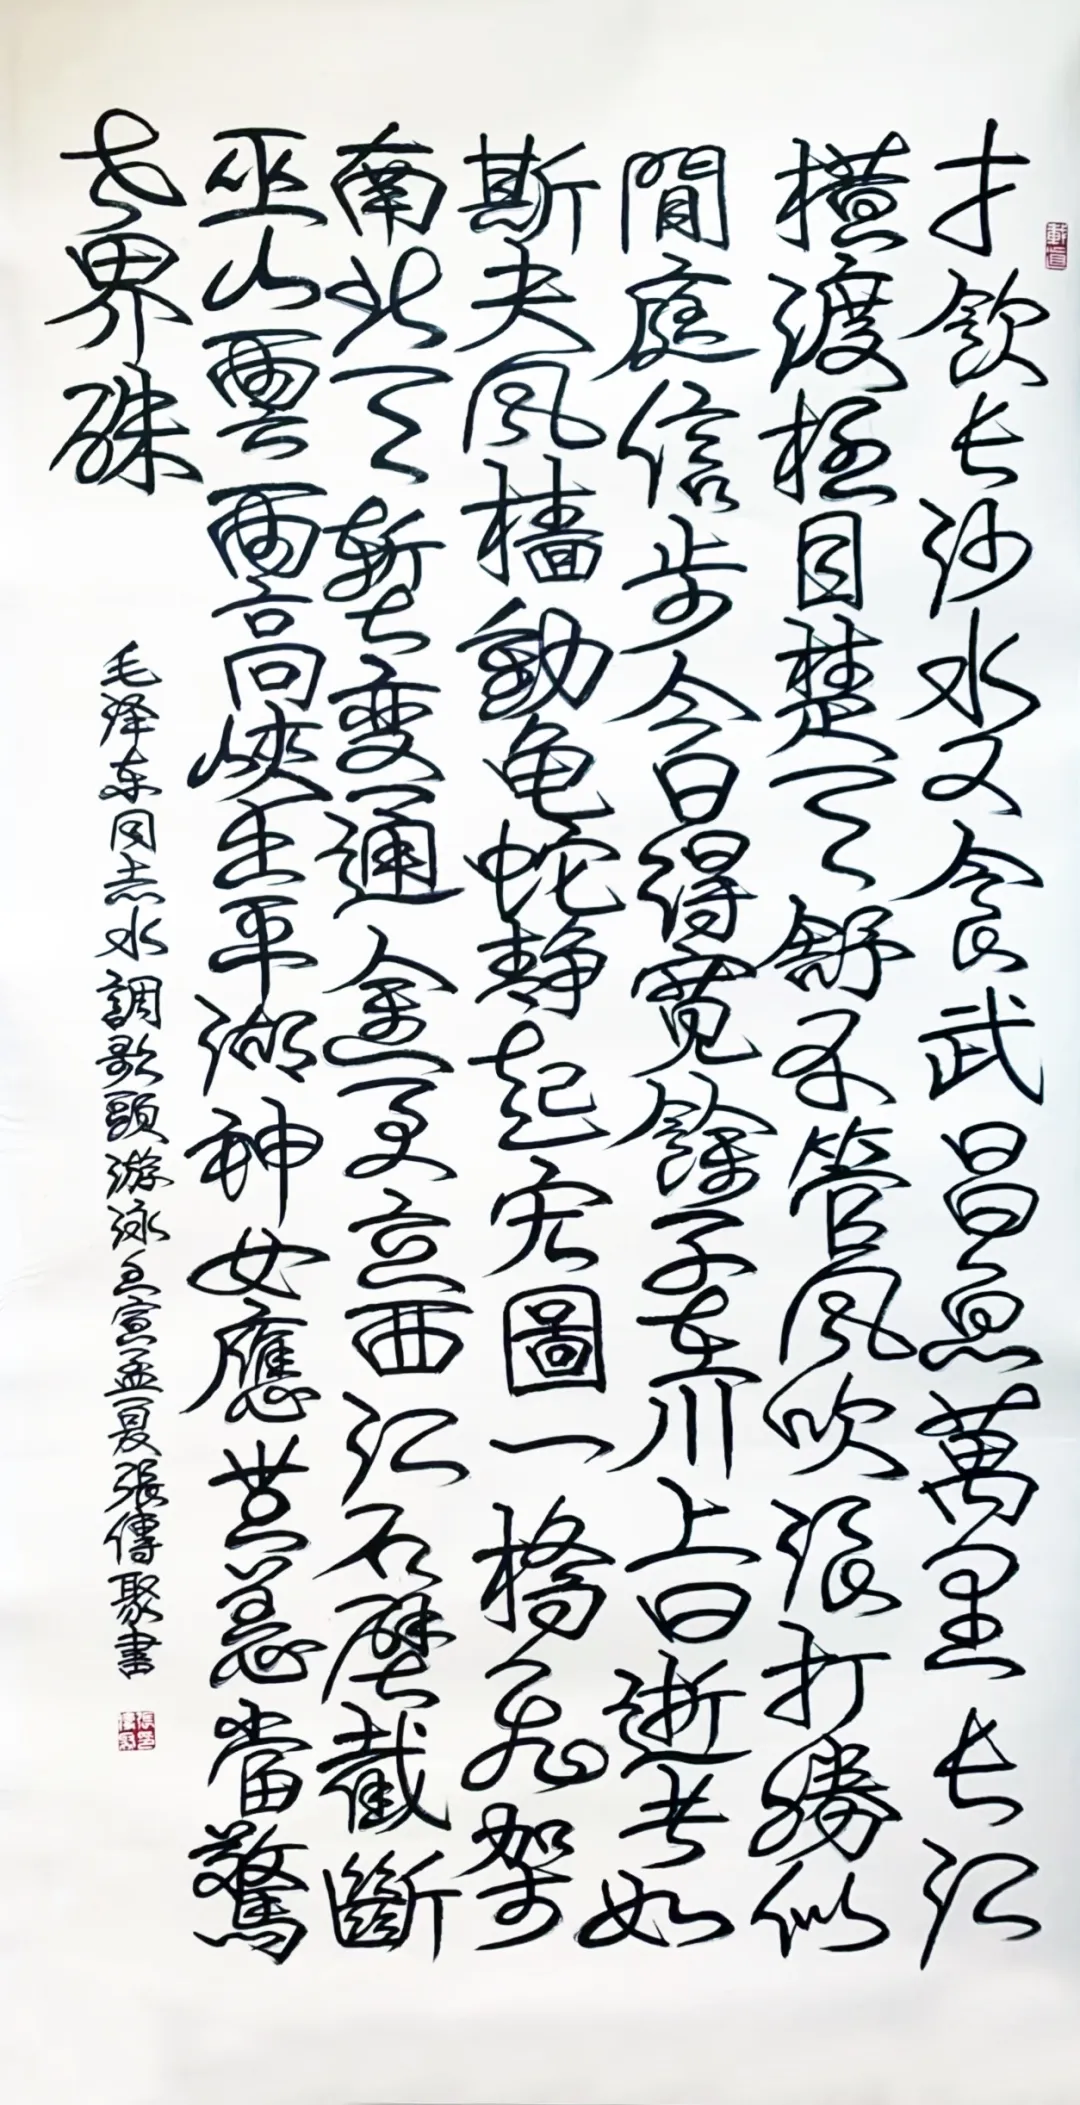 才飲长沙水又食武昌魚萬里长江
橫渡极目楚天舒不管風吹浪打勝似
閒庭信步今日得寬餘子在川上曰逝者如
斯夫風檣動龟蛇靜起宏圖一橋飛架
南北天塹变通途更立西江石壁截斷
巫山雲雨高峽出平湖神女應無恙當驚
世界殊
毛泽东同志水調歌頭游泳壬寅孟夏張傳聚書